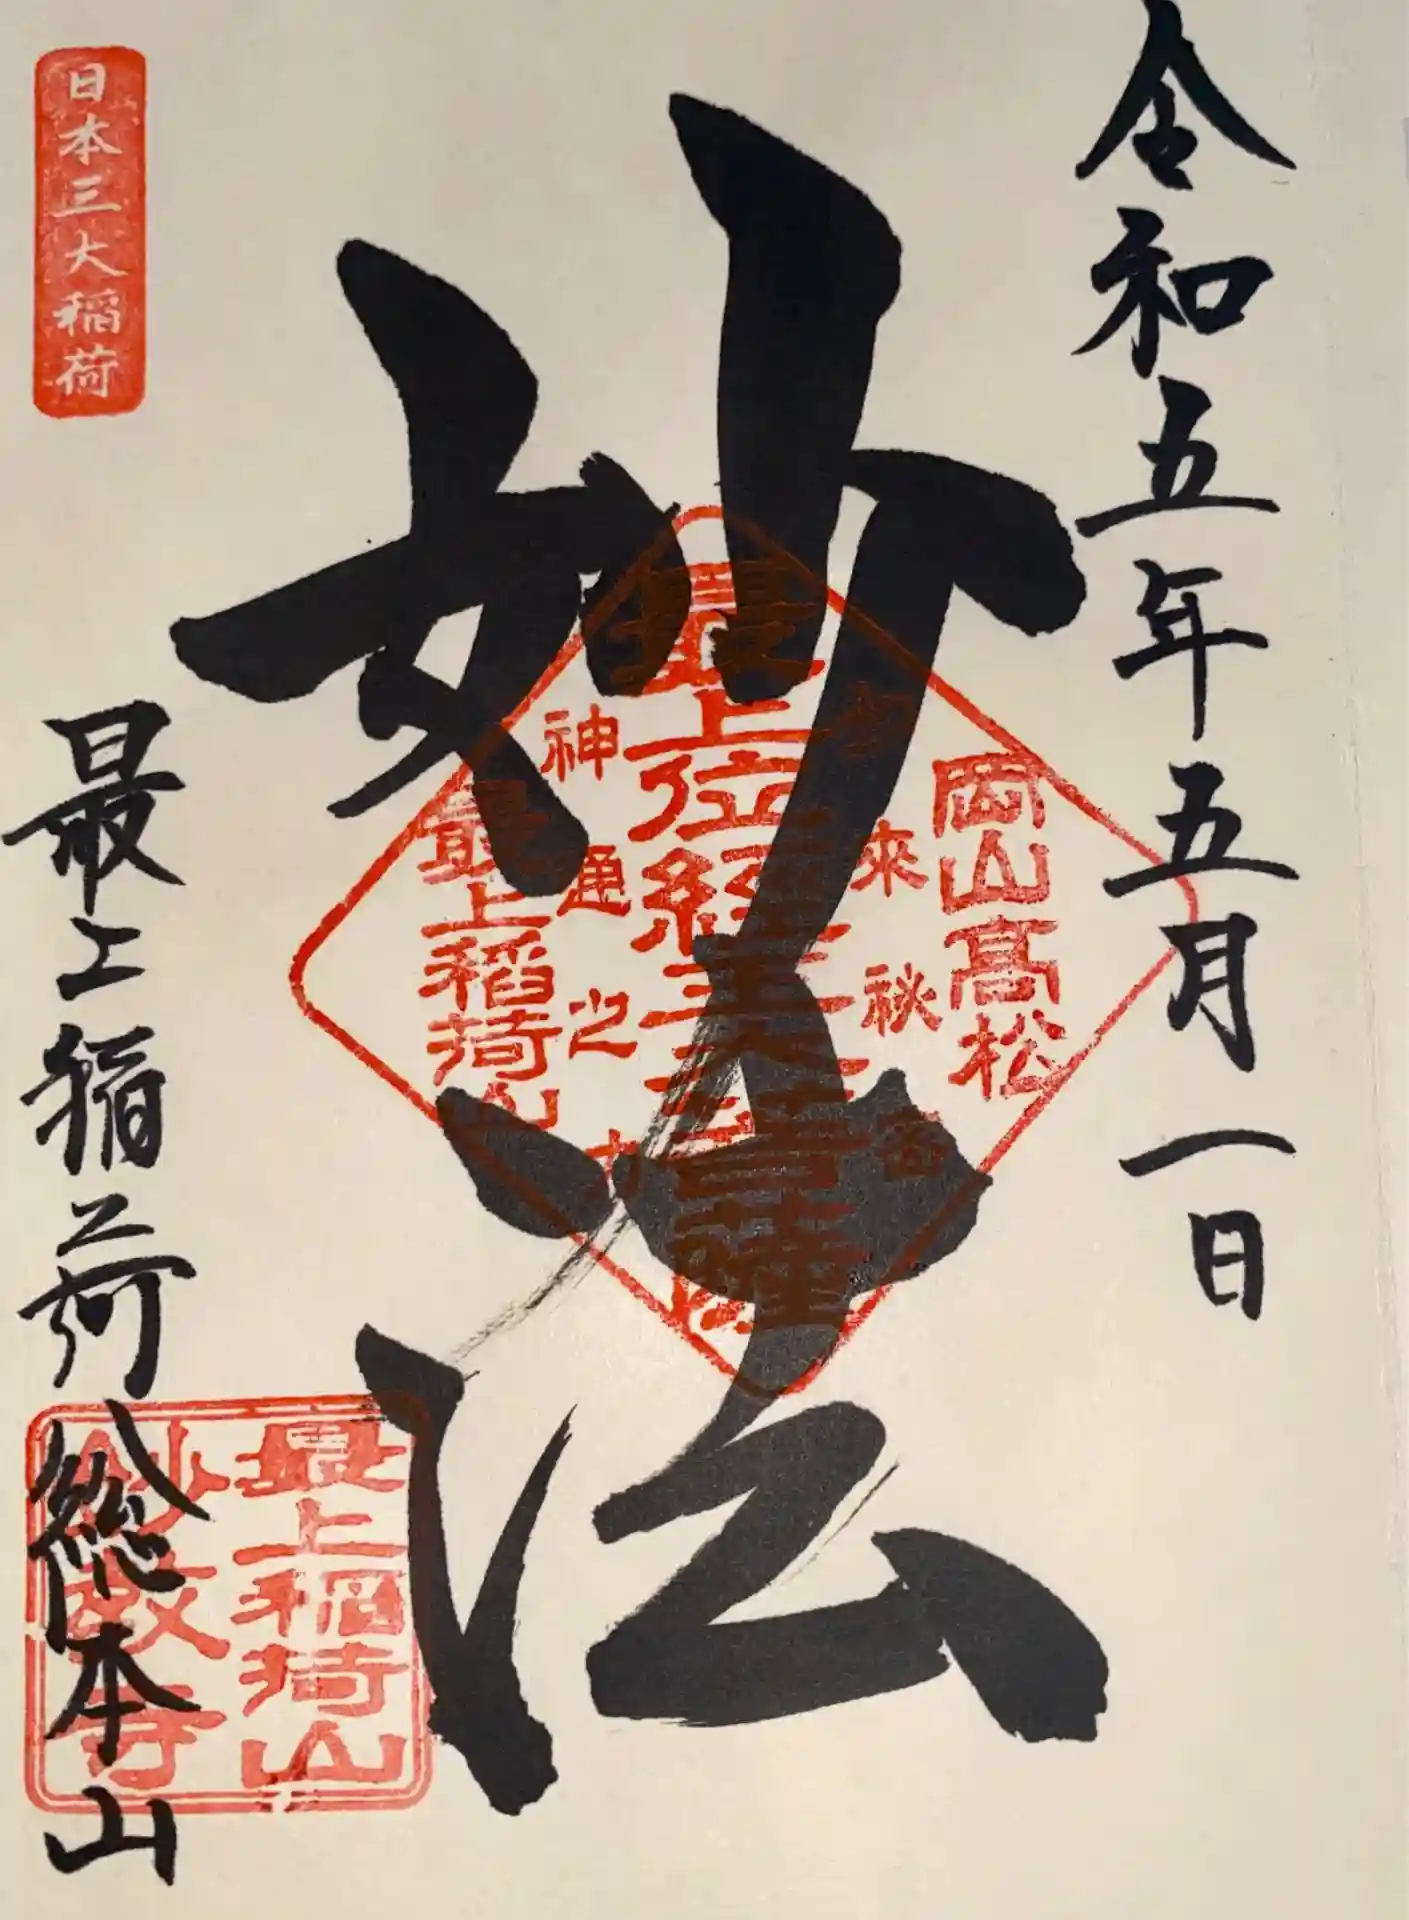 令和五年五月一日
妙法
岡山高松
如來秘密
最上位経王大菩薩
神通之力
最上稲荷山
日本三大稲荷
最上稲荷総本山
最上稲荷山
妙教寺